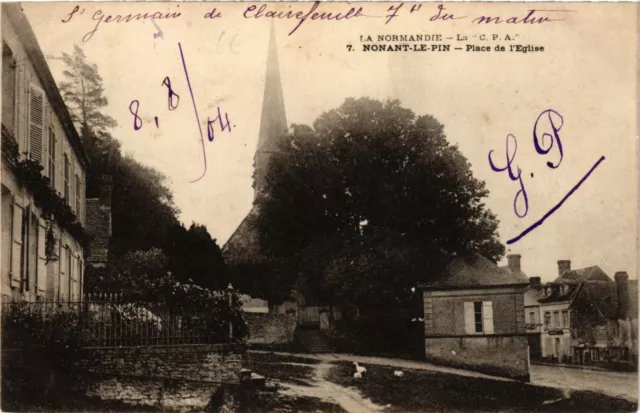 St Germain de Clairefeuille 7h du matin
LA NORMANDIE - La "C. P. A."
7. NONANT-LE-PIN - Place de l'Eglise
8, 8 04.
G. P